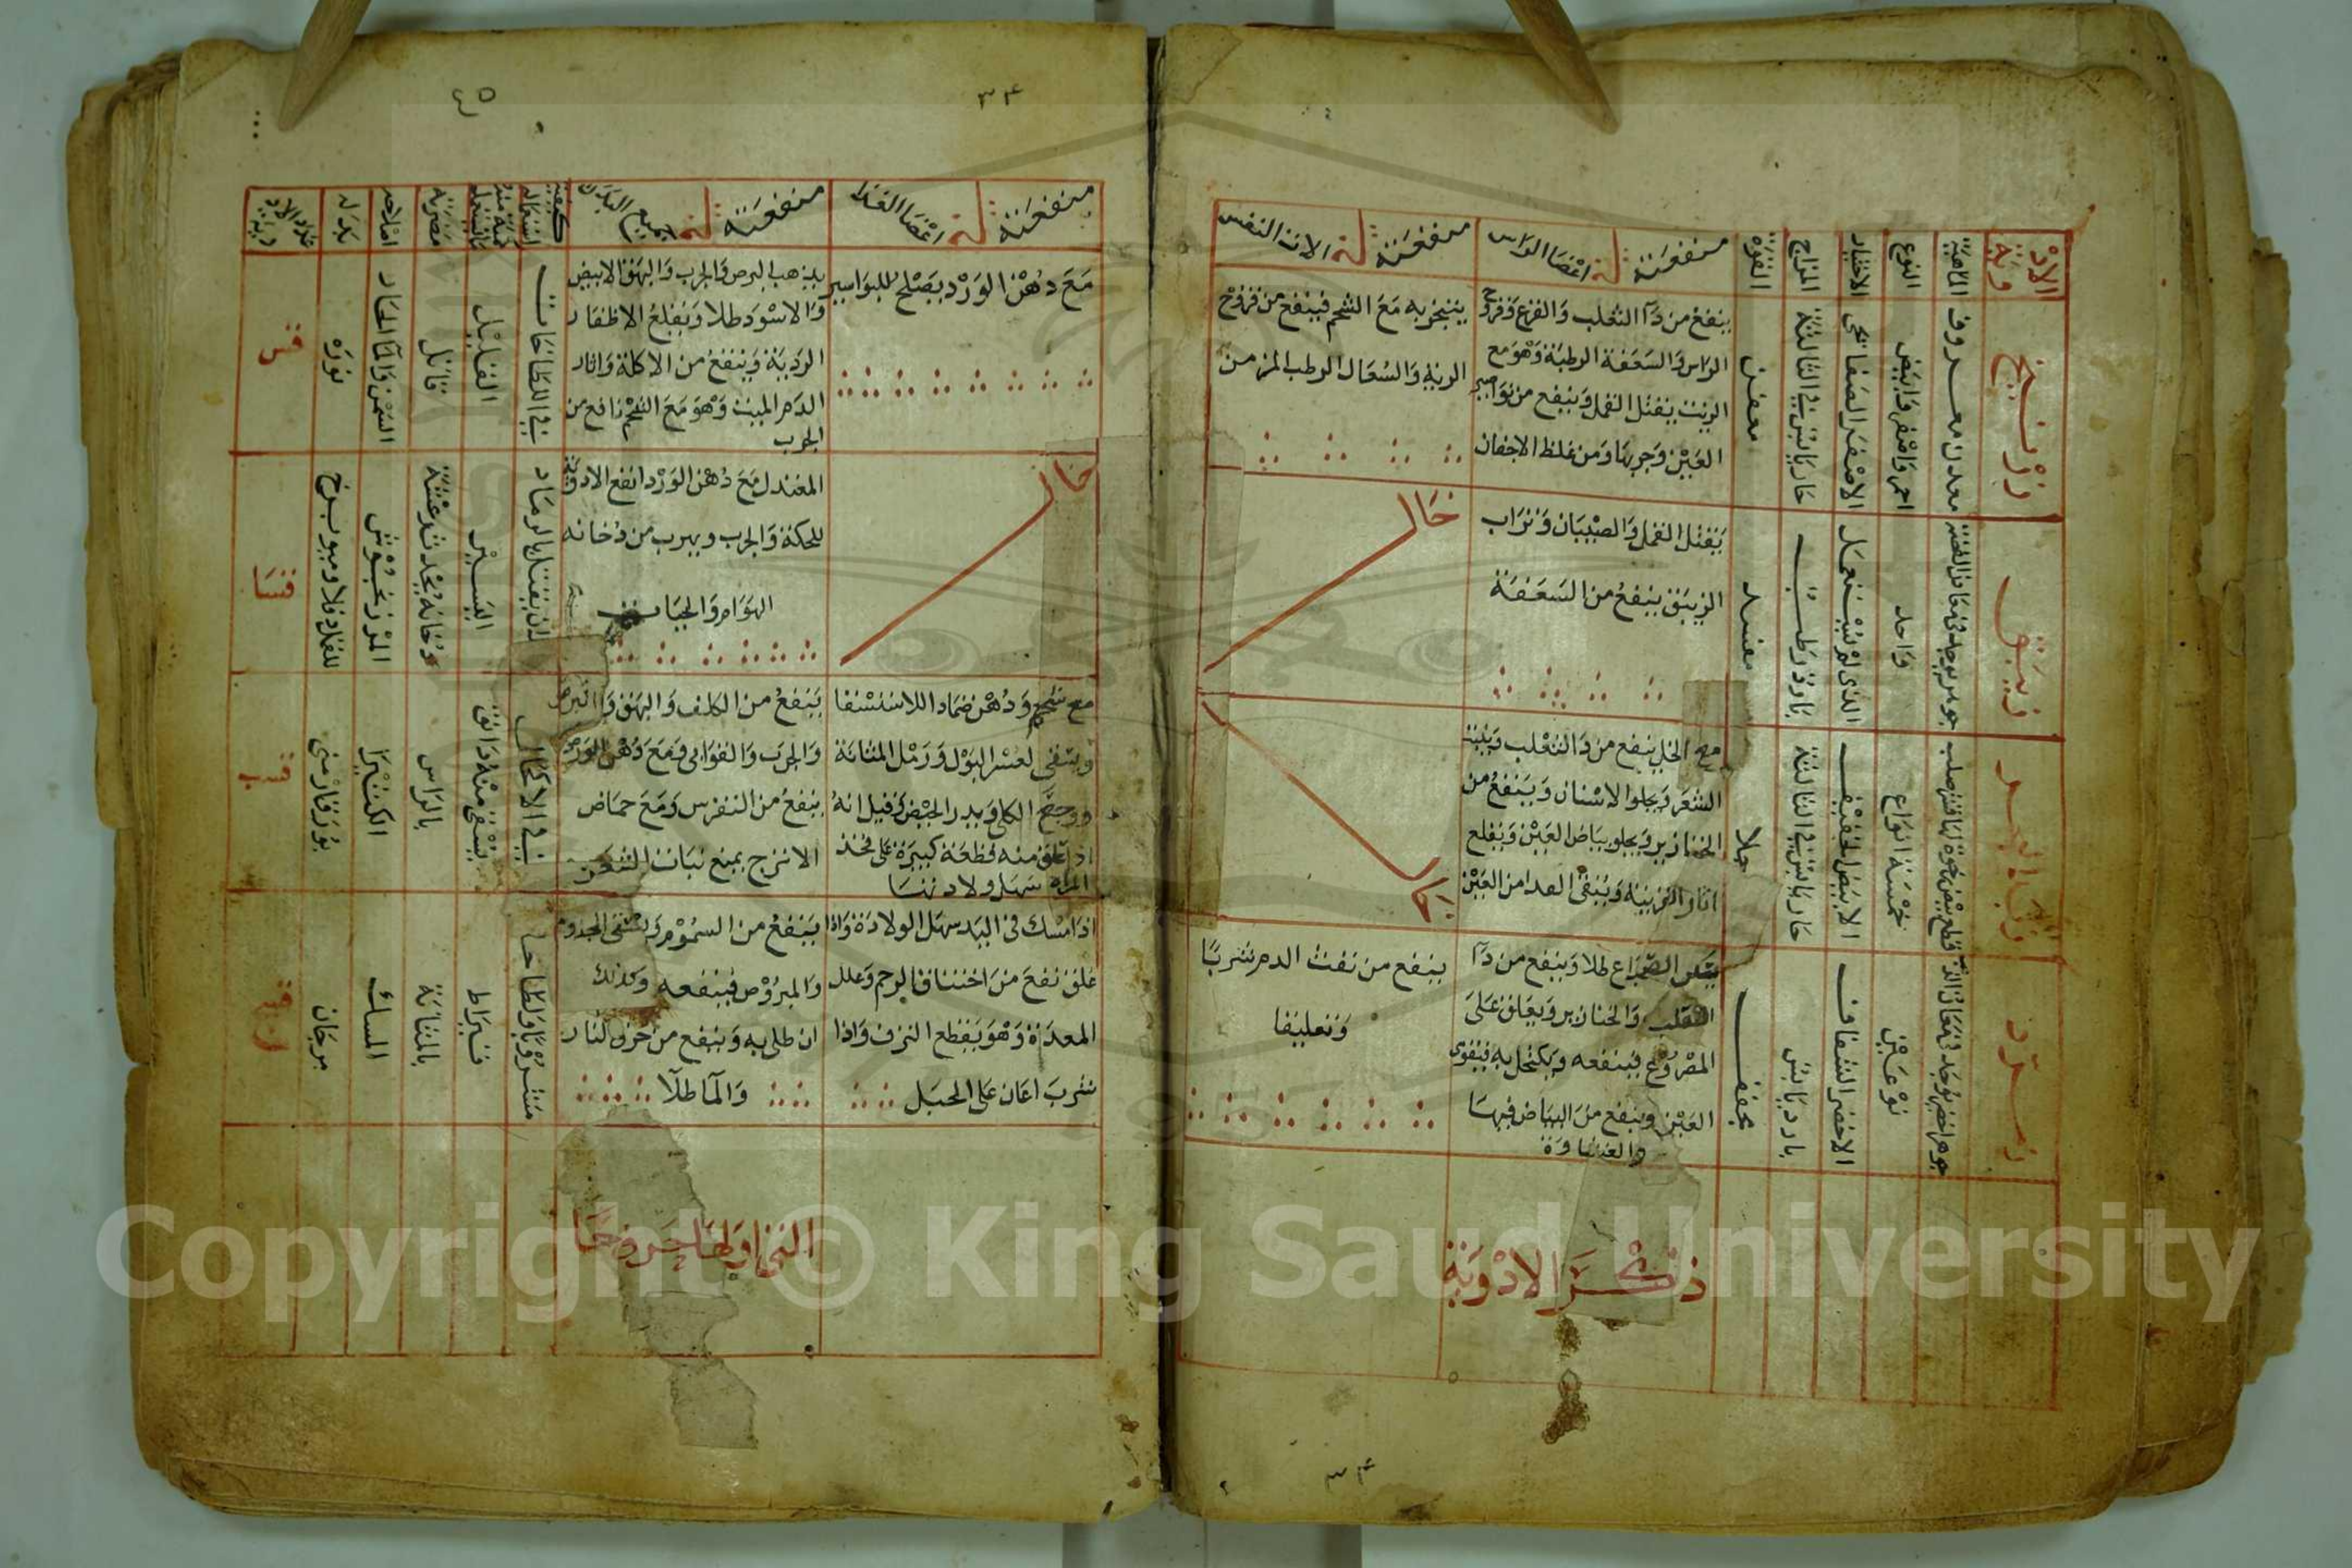 الادوية
الماهية
النوع
الاختيار
المزاج
القوة
منفعته في اعضا الراس
منفعته في الات النفس
زرنيخ
معدن معروف
احمر واصفر وابيض
الاصفر الصفائحي
حار يابس في الثالثة
معفن
ينفع من دآ الثعلب والقرع وقروح
الراس والسعفة الرطبة وهو مع
الزيت يقتل القمل وينفع من نواصير
العين وجربها ومن غلظ الاجفان
يتبخر به مع الشحم فينفع من قروح
الرية والسعال الرطب المزمن
زيبق
جوهر يوجد في معادن الفضة
واحد
الذي لم يستعمل
بارد رطب
مفسد
يقتل القمل والصيبان وتراب
الزيبق ينفع من السعفة
خال
زبد البحر
خمسة انواع
الابيض الخفيف
حار يابس في الثالثة
جلا
مع الخل ينفع من دا الثعلب وينبت
الشعر ويجلوا الاسنان وينفع من
الخنازير ويجلو بياض العين ويقلع
خال
زمرد
جوهر اخضر يوجد في معادن الذهب
نوعين
الاخضر الشفاف
بارد يابس
مجفف
يسكن الصداع طلا وينفع من دآ
الثعلب والخنازير ويعلق على
المصروع فينفعه ويكتحل به فيقوى
العين وينفع من البياض فيها
والغشاوة
ينفع من نفث الدم شربا
وتعليقا
ذكر الادوية
٣٤
٣٤
منفعته في اعضا الغذا
منفعته في جميع البدن
كيفية استعماله
كمية ما يستعمل منه
مضرته
اصلاحه
بدله
عدد الادوية
مع دهن الورد يصلح للبواسير
يذهب البرص والجرب والبهق الابيض
والاسود طلا ويقلع الاظفار
الردية وينفع من الاكلة واثار
الدم الميت وهو مع الشحم نافع من
الجرب
في اللطاخات
القليل
قاتل
السمن والمآ الحار
نوره
خال
المعتدل مع دهن الورد انفع الادوية
للحكة والجرب ويهرب من دخانه
الهوام والحيات
ان يقتل بالرماد
اليسير
دخانه يحدث رعشة
المرزنجوش
مع شحم ودهن ضماد اللاستسقا
ويسقى لعسر البول ورمل المثانة
ووجع الكلى ويدر الحيض وقيل انه
اذا علق منه قطعة كبيرة على فخذ
المراة سهل ولادتها
ينفع من الكلف والبهق والبرص
والجرب والقوابي ومع دهن الورد
ينفع من النقرس ومع حماض
الاترج يمنع نبات الشعر
في الاكحال
يسقى منه دانق
بالراس
الكثيرا
بورق ارمني
اذا مسك في اليد سهل الولادة واذا
علق نفع من اختناق الرحم وعلل
المعدة وهو يقطع النزف واذا
شرب اعان على الحبل
ينفع من السموم ويسقى المجذوم
والمبروص فينفعه وكذلك
ان طلي به وينفع من حرق النار
والمآ طلآ
مشروبا ولطاخا
قيراط
بالمثانة
المسك
مرجان
التي اولها حروف حا